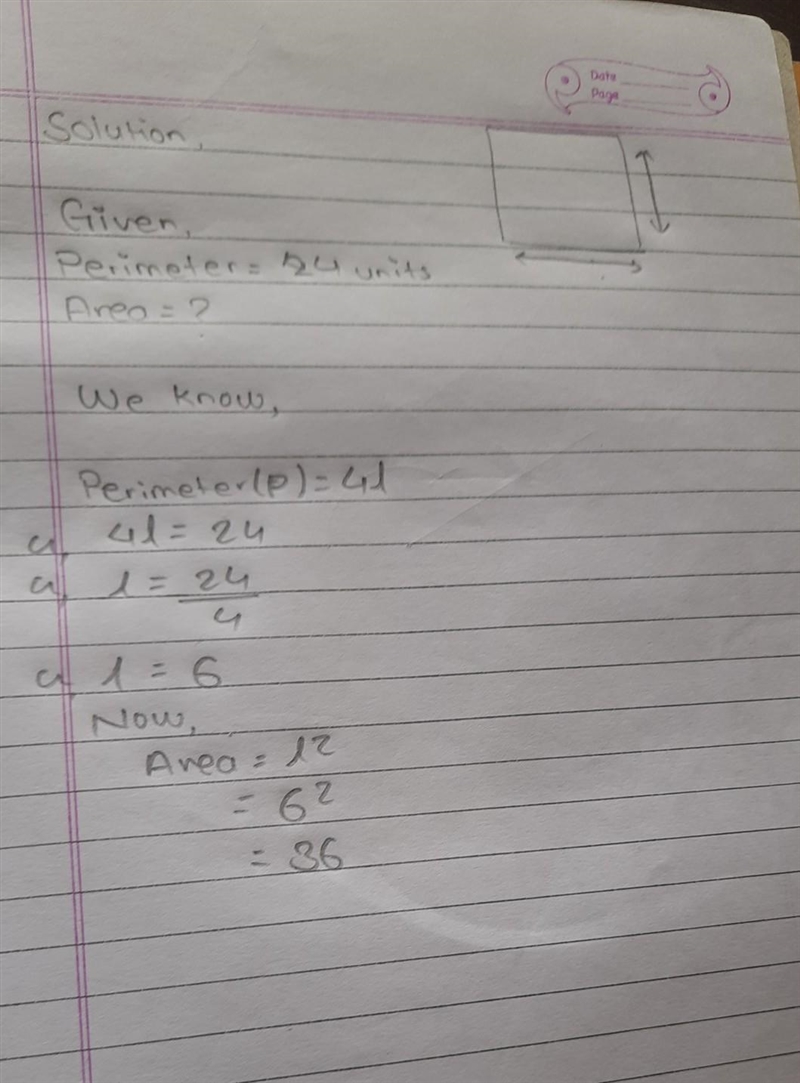 Date
Page
Solution,
Given,
Perimeter = 24 units
Area = ?
We know,
Perimeter(P) = 4l
4l = 24
l = 24/4
l = 6
Now,
Area = l²
= 6²
= 36